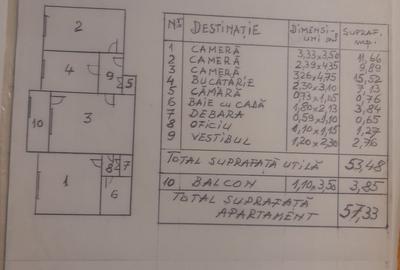 2
4
9
5
3
10
1
8
7
6
N⁰ DESTINAȚIE DIMENSI-UNI SUPRAF. mp.
1 CAMERĂ 3,33x3,50 11,66
2 CAMERĂ 2,39x4,35 9,89
3 CAMERĂ 3,26x4,75 15,52
4 BUCĂTĂRIE 2,30x3,10 7,13
5 CĂMARĂ 0,73x1,05 0,76
6 BAIE CU CADĂ 1,80x2,13 3,84
7 DEBARA 0,59x1,10 0,65
8 OFICIU 1,10x1,15 1,27
9 VESTIBUL 1,20x2,30 2,76
TOTAL SUPRAFAȚĂ UTILĂ 53,48
10 BALCON 1,10x3,50 3,85
TOTAL SUPRAFAȚĂ
APARTAMENT 57,33